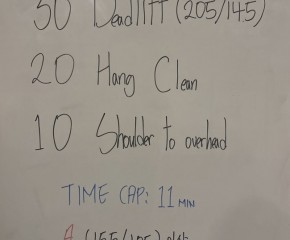 30 Deadlift (205/145)
20 Hang Clean
10 Shoulder to overhead
TIME CAP: 11 MIN
A (155/105)